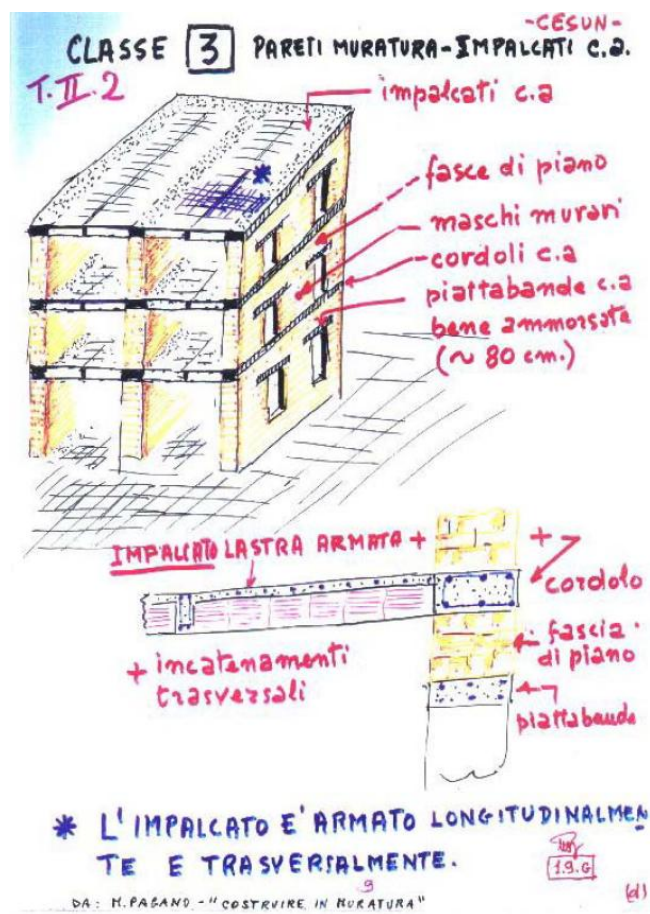 -CESUN-
CLASSE 3 PARETI MURATURA-IMPALCATI C.a.
T.II.2
impalcati c.a
fasce di piano
maschi murari
cordoli c.a
piattabande c.a
bene ammorsate
(~ 80 cm.)
IMPALCATO LASTRA ARMATA +
+
cordolo
fascia
di piano
+ incatenamenti
trasversali
piattabanda
* L'IMPALCATO E' ARMATO LONGITUDINALMEN
TE E TRASVERSALMENTE.
1.9.G
9
DA: M. PAGANO - "COSTRUIRE IN MURATURA"
(d)